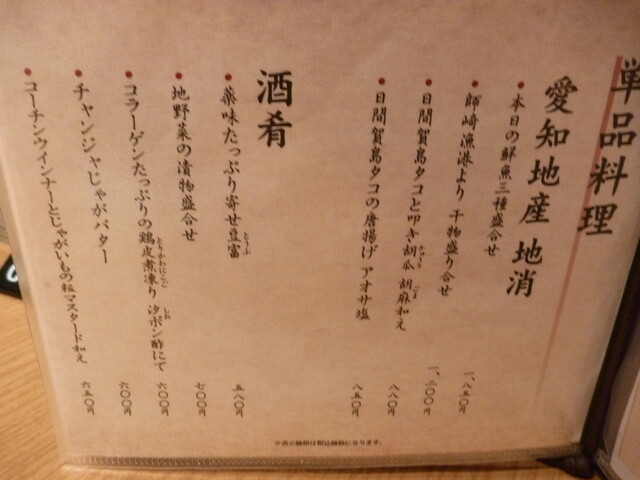 単品料理
愛知地産 地消
本日の鮮魚三種盛合せ 一、八五〇円
師崎漁港より 干物盛り合せ 一、二〇〇円
日間賀島タコと叩き胡瓜 胡麻和え 八八〇円
日間賀島タコの唐揚げ アオサ塩 八五〇円
酒肴
薬味たっぷり寄せ豆富 五八〇円
地野菜の漬物盛合せ 七〇〇円
コラーゲンたっぷりの鶏皮煮凍り 汐ポン酢にて 六〇〇円
チャンジャじゃがバター 六〇〇円
コーチンウインナーとじゃがいもの粒マスタード和え 六五〇円
※表示価格は税込価格になります。